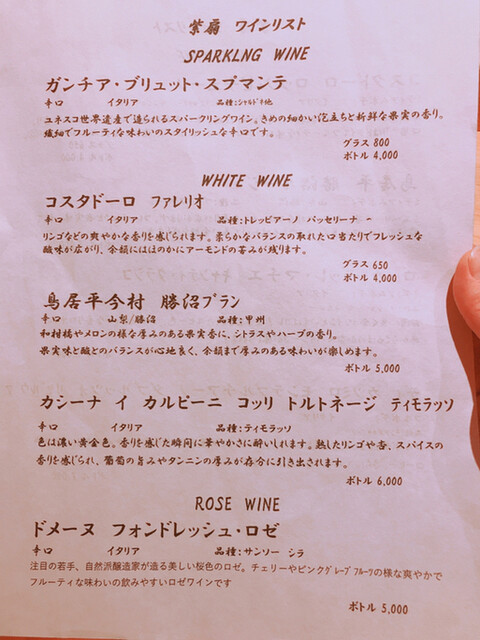 紫扇 ワインリスト
SPARKLNG WINE
ガンチア・ブリュット・スプマンテ
辛口 イタリア 品種:シャルドネ他
ユネスコ世界遺産で造られるスパークリングワイン。きめの細かい泡立ちと新鮮な果実の香り。
繊細でフルーティな味わいのスタイリッシュな辛口です。
グラス 800
ボトル 4,000
WHITE WINE
コスタドーロ ファレリオ
辛口 イタリア 品種:トレッビアーノ パッセリーナ ー
リンゴなどの爽やかな香りを感じられます。柔らかなバランスの取れた口当たりでフレッシュな
酸味が広がり、余韻にはほのかにアーモンドの苦みが残ります。
グラス 650
ボトル 4,000
鳥居平今村 勝沼ブラン
辛口 山梨/勝沼 品種:甲州
和柑橘やメロンの様な厚みのある果実香に、シトラスやハーブの香り。
果実味と酸とのバランスが心地良く、余韻まで厚みのある味わいが楽しめます。
ボトル 5,000
カシーナ イ カルピーニ コッリ トルトネージ ティモラッソ
辛口 イタリア 品種:ティモラッソ
色は濃い黄金色。香りを感じた瞬間に華やかさに酔いしれます。熟したリンゴや杏、スパイスの
香りを感じられ、葡萄の旨みやタンニンの厚みが存分に引き出されます。
ボトル 6,000
ROSE WINE
ドメーヌ フォンドレッシュ・ロゼ
辛口 イタリア 品種:サンソー シラ
注目の若手、自然派醸造家が造る美しい桜色のロゼ。チェリーやピンクグレープフルーツの様な爽やかで
フルーティな味わいの飲みやすいロゼワインです
ボトル 5,000